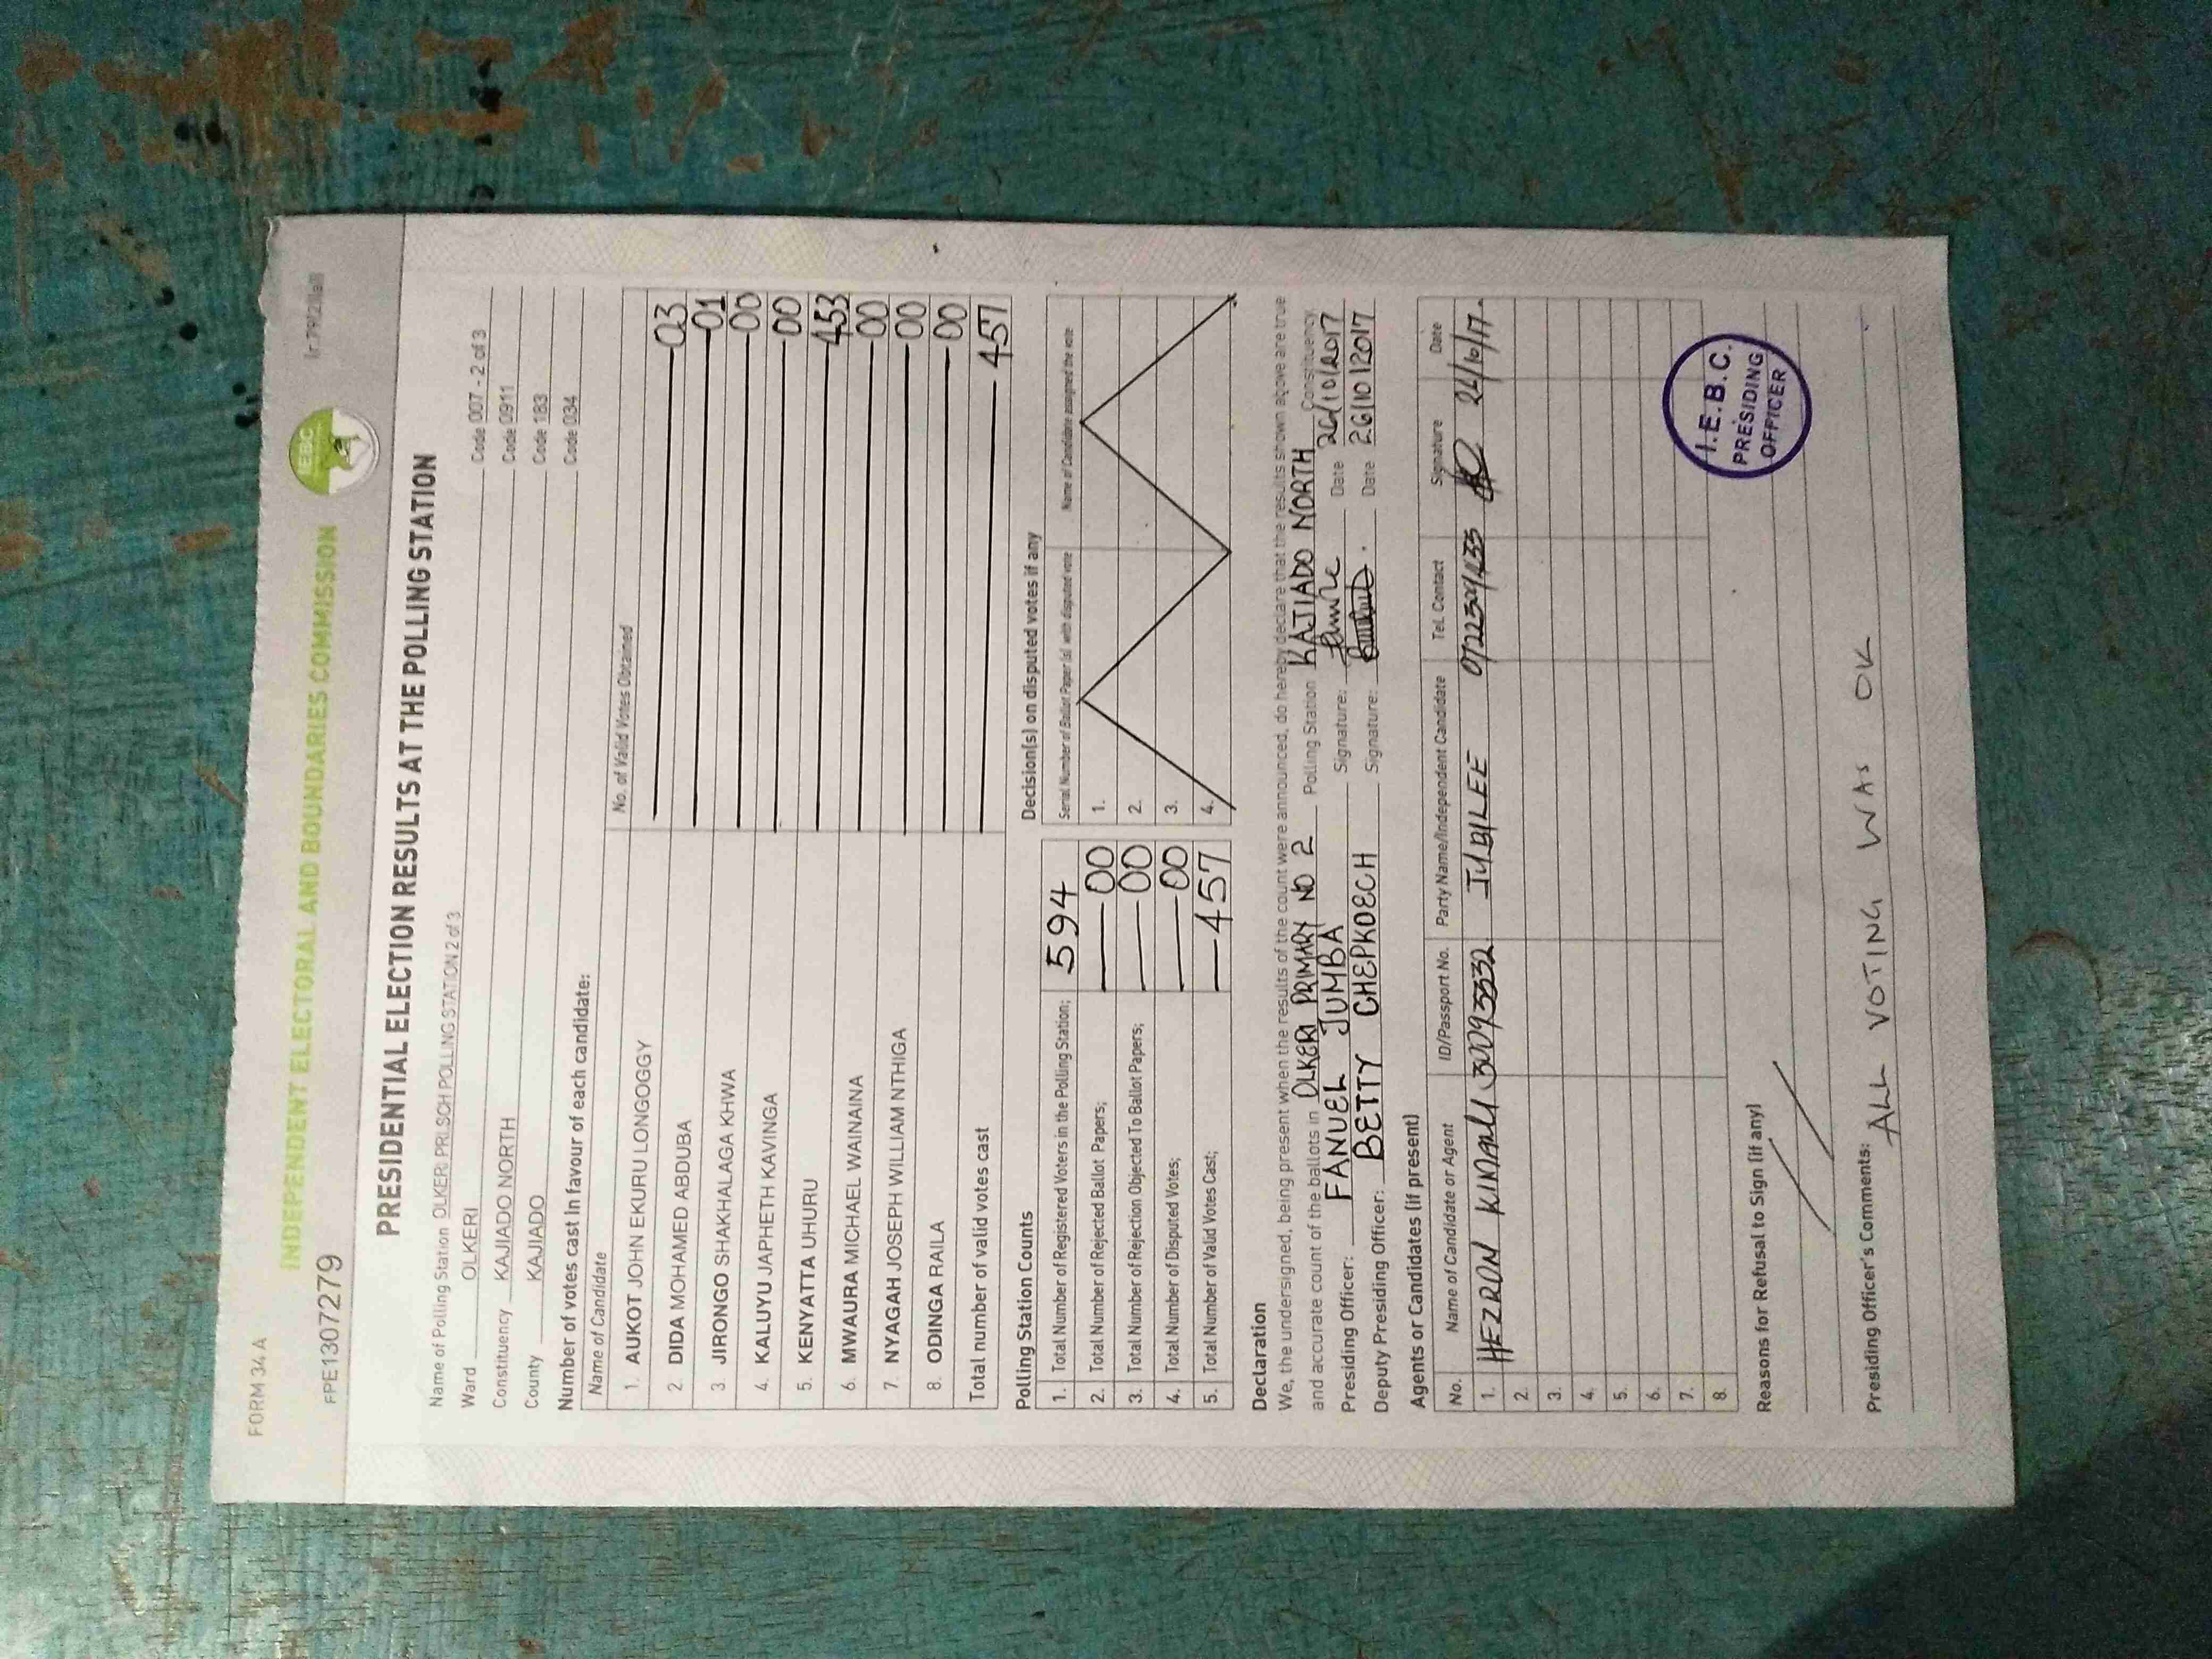 FORM 34 A
INDEPENDENT ELECTORAL AND BOUNDARIES COMMISSION
IEBC
FPE1307279
PRESIDENTIAL ELECTION RESULTS AT THE POLLING STATION
Name of Polling Station OLKERI PRI SCH POLLING STATION 2 of 3 Code 007 - 2 of 3
Ward OLKERI Code 0911
Constituency KAJIADO NORTH Code 183
County KAJIADO Code 034
Number of votes cast in favour of each candidate:
Name of Candidate No. of Valid Votes Obtained
1. AUKOT JOHN EKURU LONGOGGY 03
2. DIDA MOHAMED ABDUBA 01
3. JIRONGO SHAKHALAGA KHWA 00
4. KALUYU JAPHETH KAVINGA 00
5. KENYATTA UHURU 453
6. MWAURA MICHAEL WAINAINA 00
7. NYAGAH JOSEPH WILLIAM NTHIGA 00
8. ODINGA RAILA 00
Total number of valid votes cast 457
Polling Station Counts
1. Total Number of Registered Voters in the Polling Station; 594
2. Total Number of Rejected Ballot Papers; 00
3. Total Number of Rejection Objected To Ballot Papers; 00
4. Total Number of Disputed Votes; 00
5. Total Number of Valid Votes Cast; 457
Decision(s) on disputed votes if any
Serial Number of Ballot Paper (s) with disputed vote Name of Candidate assigned the vote
1.
2.
3.
4.
Declaration
We, the undersigned, being present when the results of the count were announced, do hereby declare that the results shown above are true
and accurate count of the ballots in OLKERI PRIMARY NO 2 Polling Station KAJIADO NORTH Constituency
Presiding Officer: FANUEL JUMBA Signature: Date 26/10/2017
Deputy Presiding Officer: BETTY CHEPKOECH Signature: Date 26/10/2017
Agents or Candidates (if present)
No. Name of Candidate or Agent ID/Passport No. Party Name/Independent Candidate Tel. Contact Signature Date
1. HEZRON JUBILEE
2.
3.
4.
5.
6.
7.
8.
I.E.B.C.
PRESIDING
OFFICER
Reasons for Refusal to Sign (if any)
Presiding Officer's Comments: ALL VOTING WAS OK